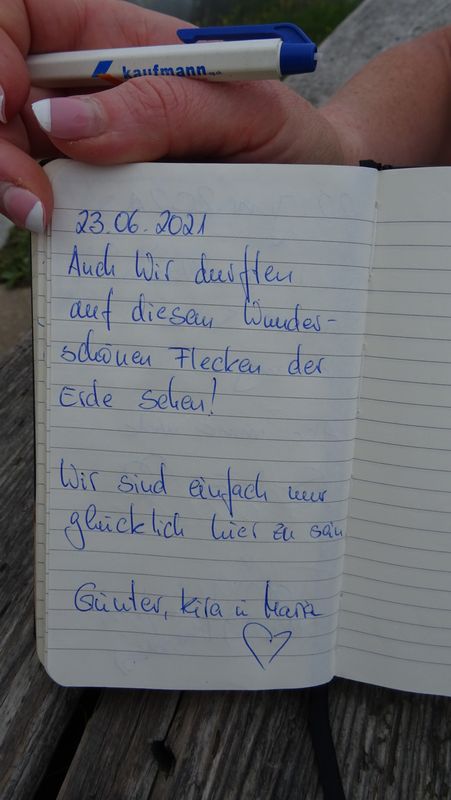 kaufmann
23.06.2021
Auch Wir durften
auf diesem Wunder-
schönen Flecken der
Erde sehen!
Wir sind einfach nur
glücklich hier zu sein
Günter, Kira u Maria